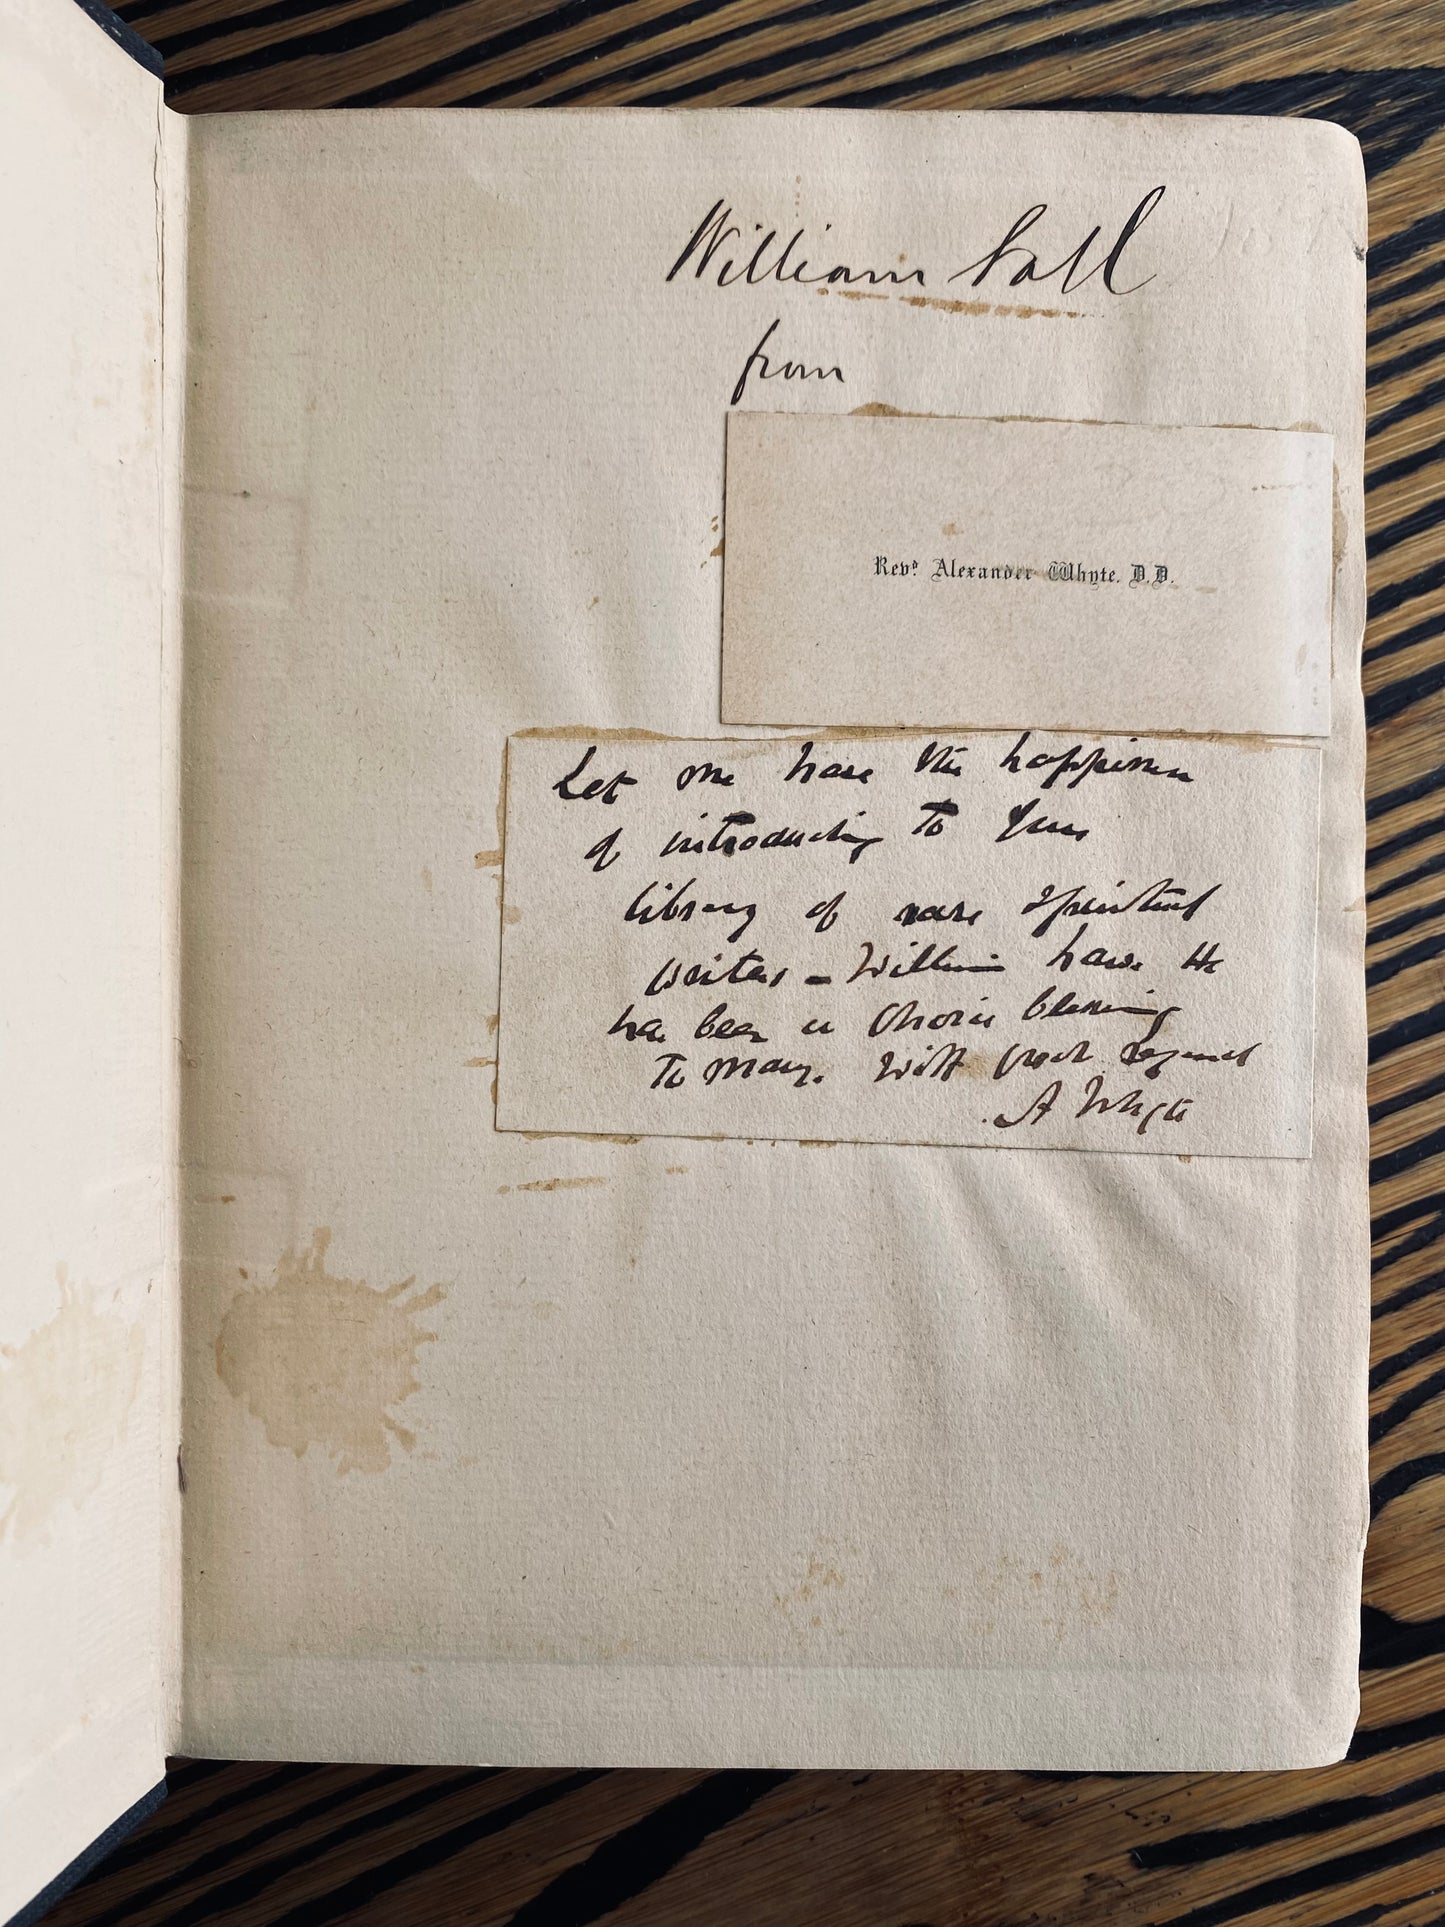 William
from
Revᵈ. Alexander Whyte. D.D.
Let me have the happiness
of introducing to your
library of rare spiritual
writers – William Law. He
has been a choice blessing
to many. With great regard
A Whyte